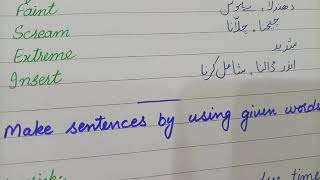 Faint دھندلا، بیہوش
Scream چیخنا، چلّانا
Extreme شدید
Insert اندر ڈالنا، شامل کرنا
Make sentences by using given words
time